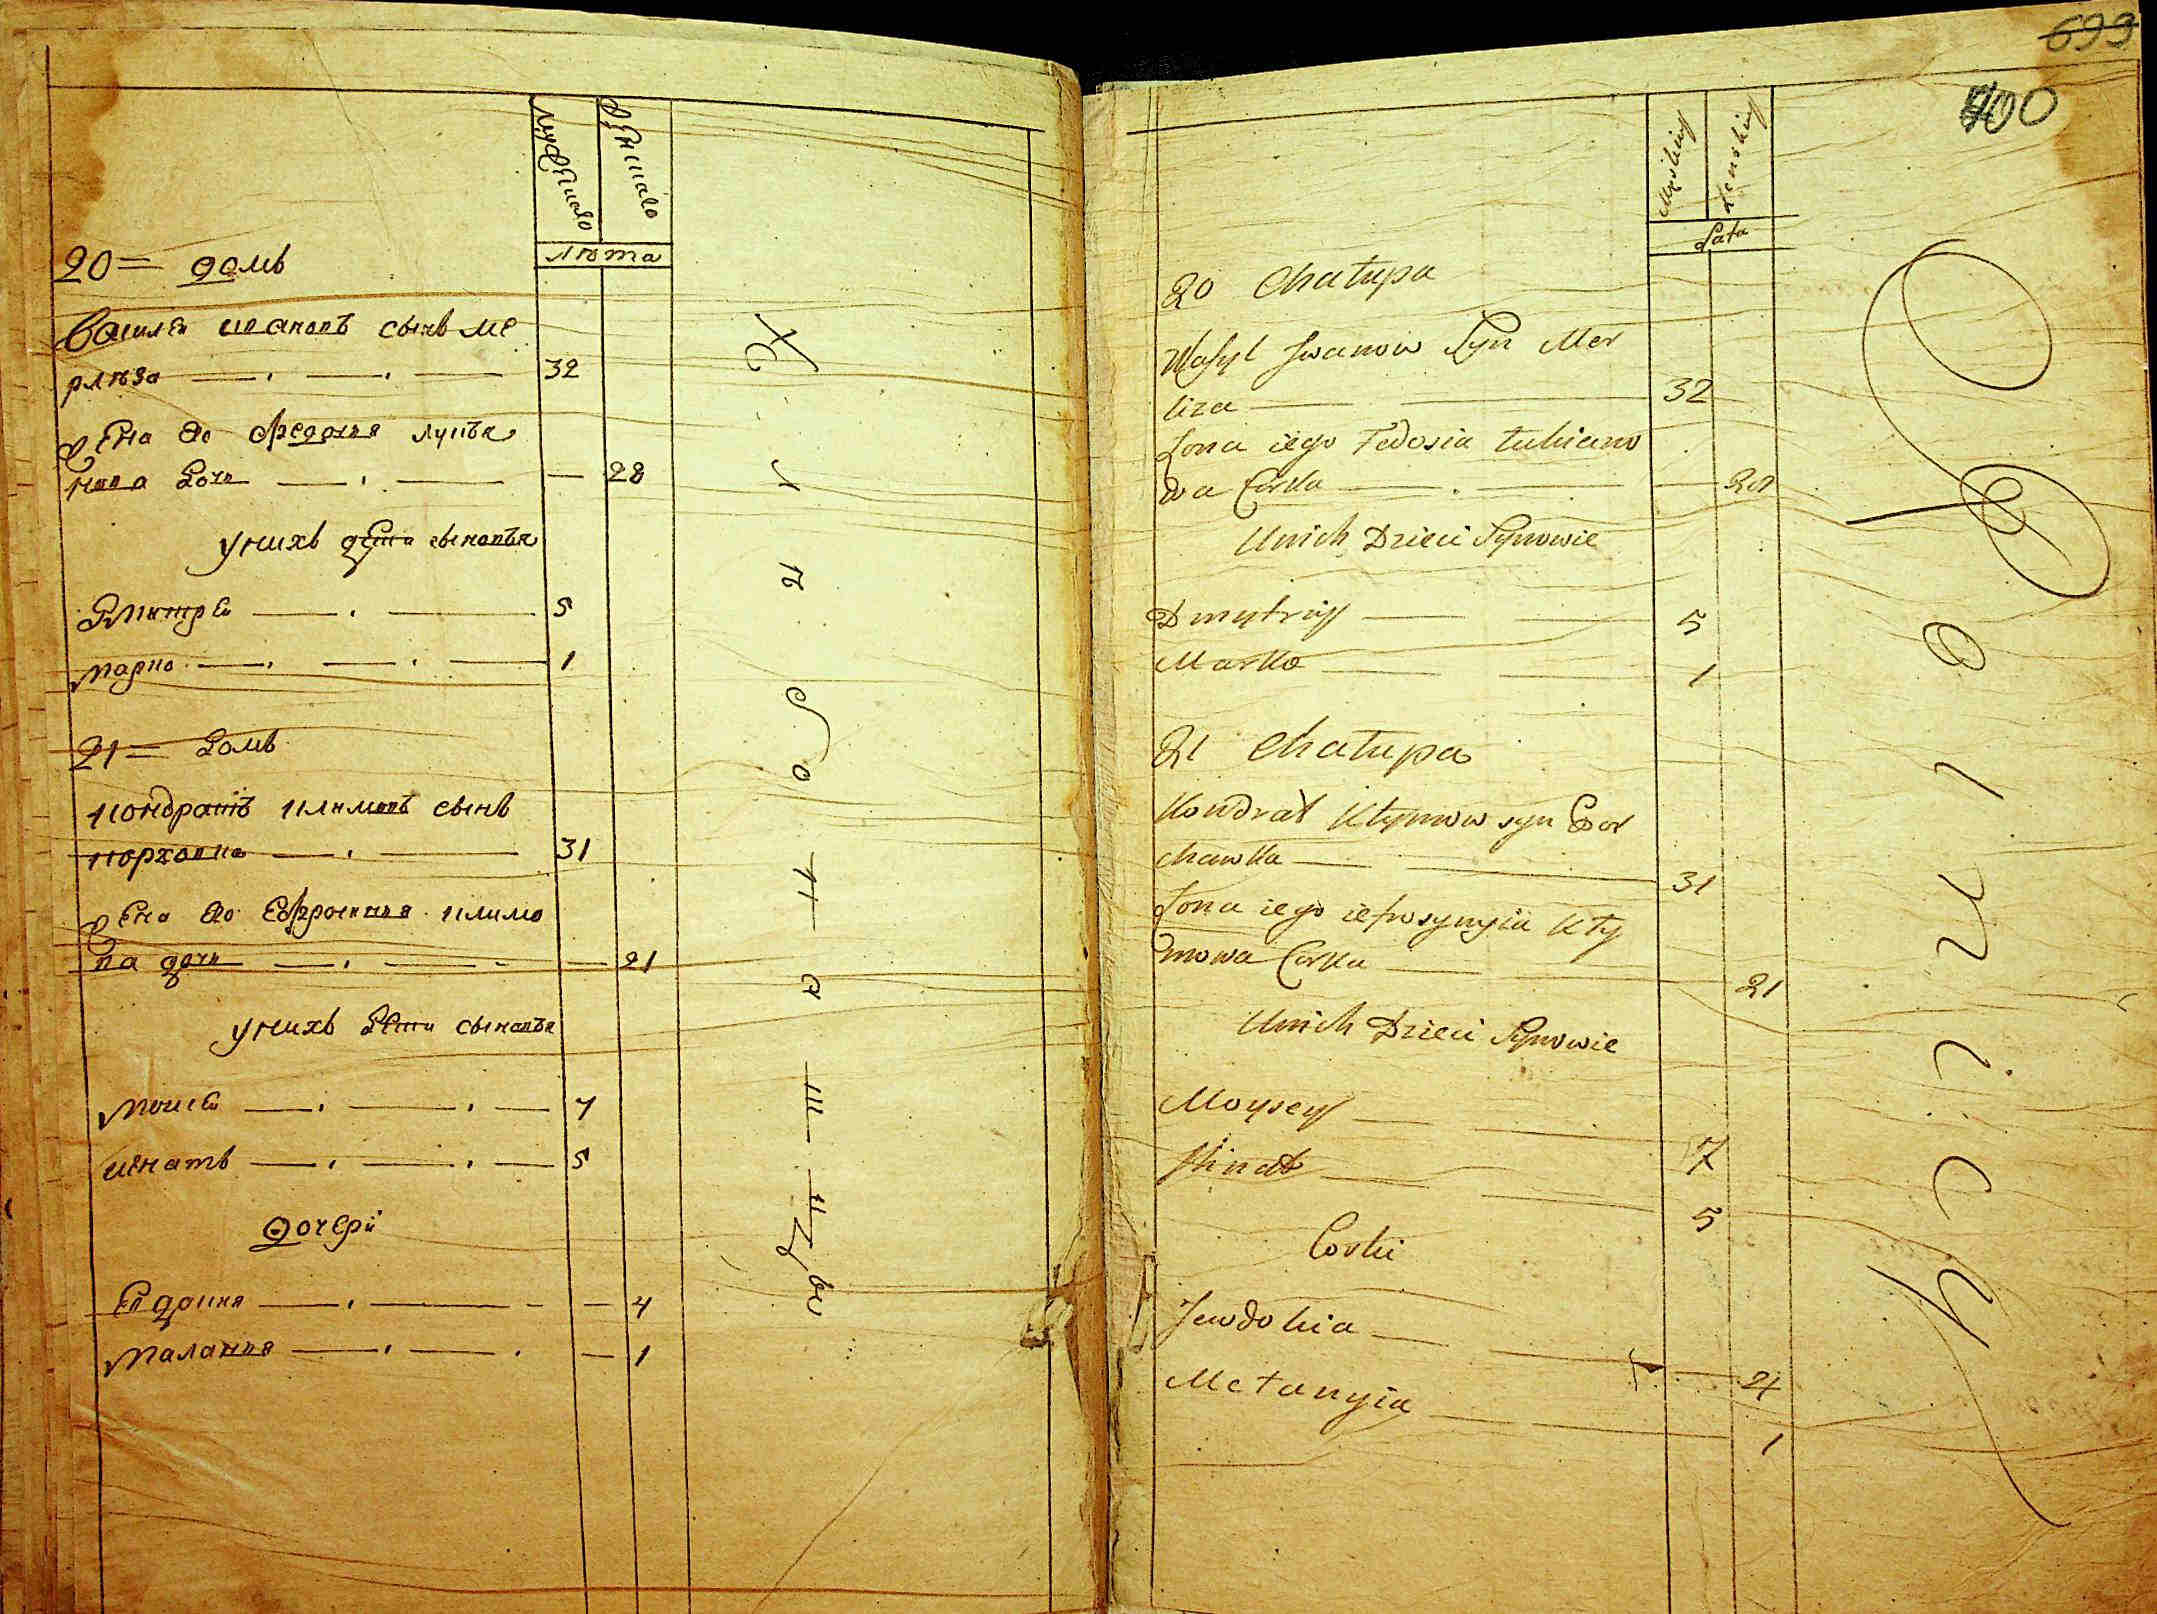 мужескаго
женскаго
лѣта
20= домъ
василей ивановъ сынъ ме
рлѣза 32
жена его федосия лукья
нова дочь 28
у нихъ дети сыновья
дмитрей 5
марко 1
21= домъ
кондратъ климовъ сынъ
корховка 31
жена его ефросиния климо
ва дочь 21
у нихъ дети сыновья
моисей 7
игнатъ 5
дочери
евдокия 4
малания 1
Хлѣбопашцы
699
700
Męskiey
Żenskiey
Lata
20 Chałupa
Wasyl Jwanow Syn Mer
liza 32
Żona iego Fedosia Łukiano
wa Corka 28
U nich Dzieci Synowie
Dmytriy 5
Marko 1
21 Chałupa
Kondrat Kłymow syn Kor
chawka 31
Żona iego iefrosynyia Kły
mowa Corka 21
U nich Dzieci Synowie
Moysey 7
Ihnat 5
Corki
Jewdokia 4
Mełanyia 1
Rolnicy